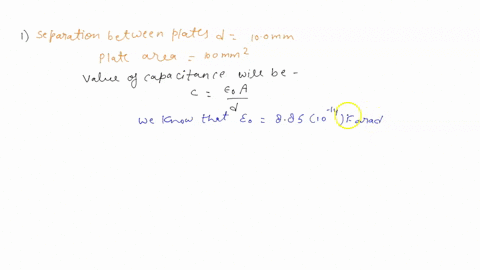 1) Separation between plates d = 10.0mm
Plate area = 60mm²
Value of capacitance will be -
C = ε₀A/d
we know that ε₀ = 8.85 (10⁻¹⁴) Farad